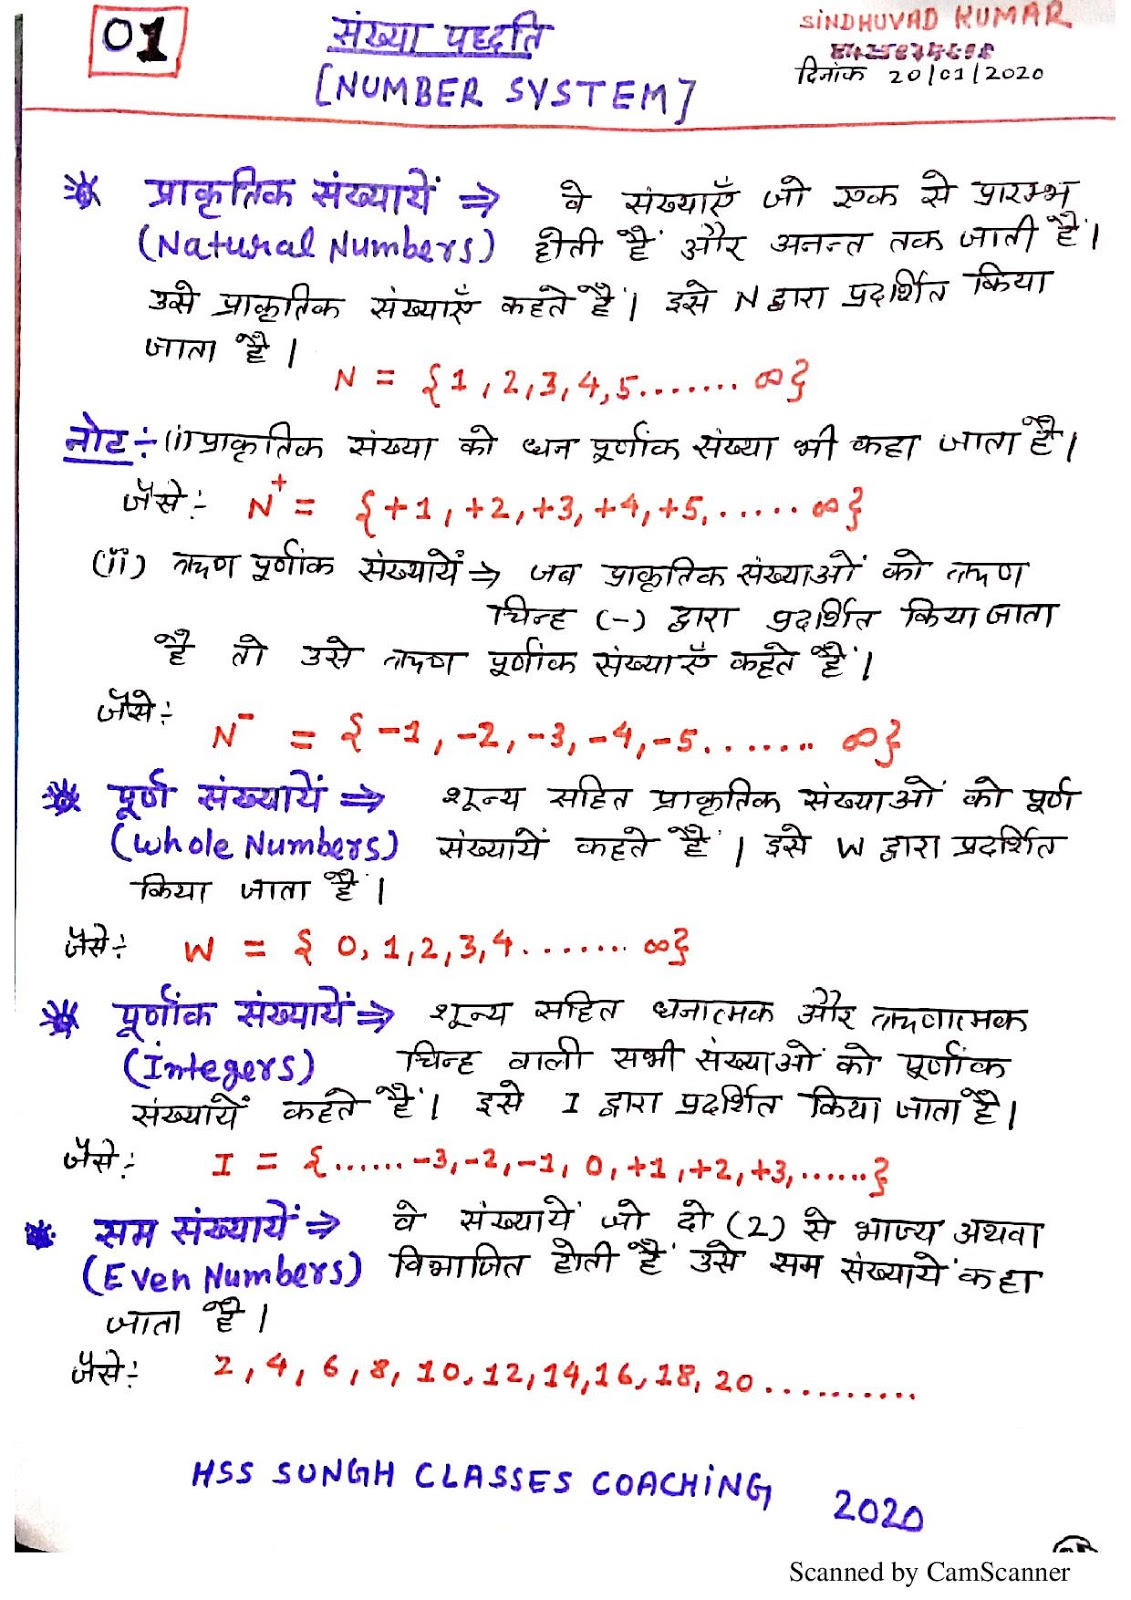 01
संख्या पद्धति
[NUMBER SYSTEM]
SINDHUVAD KUMAR
दिनांक 20/01/2020
प्राकृतिक संख्यायें ⇒ वे संख्याएँ जो एक से प्रारम्भ
(Natural Numbers) होती हैं और अनन्त तक जाती हैं।
उसे प्राकृतिक संख्याएँ कहते हैं। इसे N द्वारा प्रदर्शित किया
जाता है।
N = {1, 2, 3, 4, 5....... ∞}
नोट ÷ (i) प्राकृतिक संख्या को धन पूर्णांक संख्या भी कहा जाता है।
जैसे ÷ N⁺ = {+1, +2, +3, +4, +5, ..... ∞}
(ii) ऋण पूर्णांक संख्यायें ⇒ जब प्राकृतिक संख्याओं को ऋण
चिन्ह (-) द्वारा प्रदर्शित किया जाता
है तो उसे ऋण पूर्णांक संख्याएँ कहते हैं।
जैसे ÷
N⁻ = {-1, -2, -3, -4, -5....... ∞}
पूर्ण संख्यायें ⇒ शून्य सहित प्राकृतिक संख्याओं को पूर्ण
(Whole Numbers) संख्यायें कहते हैं। इसे W द्वारा प्रदर्शित
किया जाता है।
जैसे ÷ W = {0, 1, 2, 3, 4....... ∞}
पूर्णांक संख्यायें ⇒ शून्य सहित धनात्मक और ऋणात्मक
(Integers) चिन्ह वाली सभी संख्याओं को पूर्णांक
संख्यायें कहते हैं। इसे I द्वारा प्रदर्शित किया जाता है।
जैसे ÷ I = {...... -3, -2, -1, 0, +1, +2, +3, ......}
सम संख्यायें ⇒ वे संख्यायें जो दो (2) से भाज्य अथवा
(Even Numbers) विभाजित होती हैं उसे सम संख्यायें कहा
जाता है।
जैसे ÷ 2, 4, 6, 8, 10, 12, 14, 16, 18, 20..........
HSS SUNGH CLASSES COACHING 2020
Scanned by CamScanner